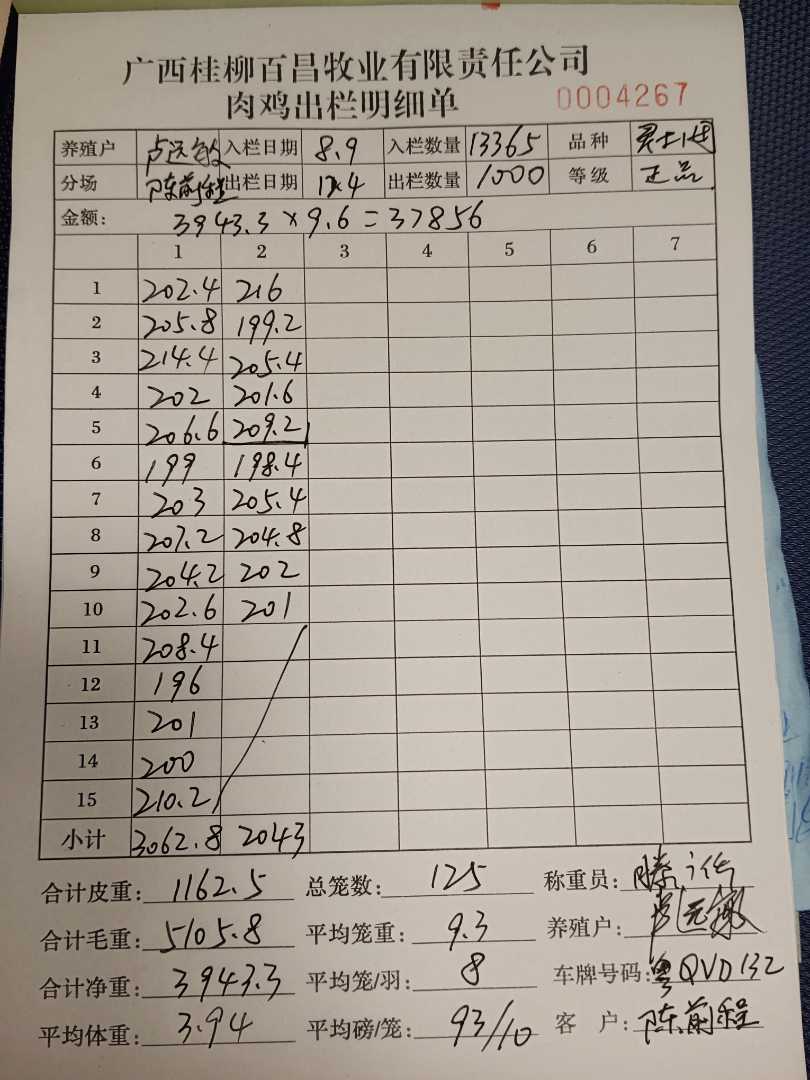 广西桂柳百昌牧业有限责任公司
肉鸡出栏明细单 0004267
养殖户 卢远敏 入栏日期 8.9 入栏数量 13365 品种
分场 陈前程 出栏日期 12.4 出栏数量 1000 等级 正品
金额: 3943.3×9.6=37856
1 2 3 4 5 6 7
1 202.4 216
2 205.8 199.2
3 214.4 205.4
4 202 201.6
5 206.6 209.2
6 199 198.4
7 203 205.4
8 207.2 204.8
9 204.2 202
10 202.6 201
11 208.4
12 196
13 201
14 200
15 210.2
小计 3062.8 2043
合计皮重: 1162.5 总笼数: 125 称重员:
合计毛重: 5105.8 平均笼重: 9.3 养殖户: 卢远敏
合计净重: 3943.3 平均笼/羽: 8 车牌号码: 粤QVD132
平均体重: 3.94 平均磅/笼: 93/10 客户: 陈前程